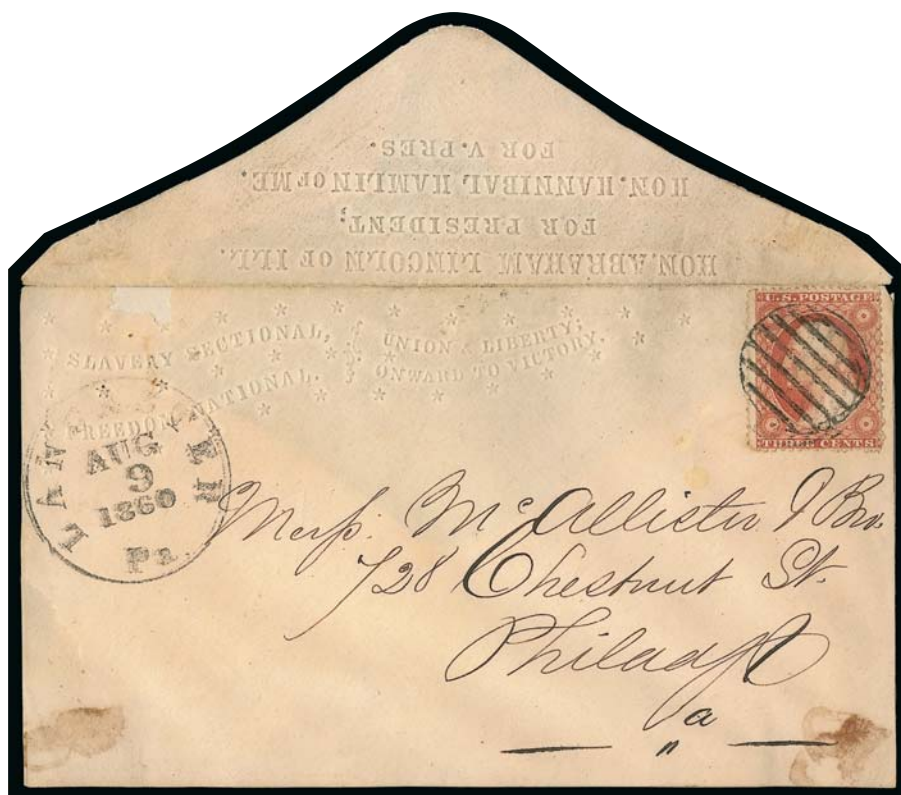 HON. ABRAHAM LINCOLN OF ILL.
FOR PRESIDENT;
HON. HANNIBAL HAMLIN OF ME.
FOR V. PRES.
SLAVERY SECTIONAL,
FREEDOM NATIONAL.
UNION & LIBERTY;
ONWARD TO VICTORY.
U.S. POSTAGE
THREE CENTS
LANCASTER
AUG
9
1860
Pa.
Messrs. McAllister & Bro.
728 Chestnut St.
Philada
"a"